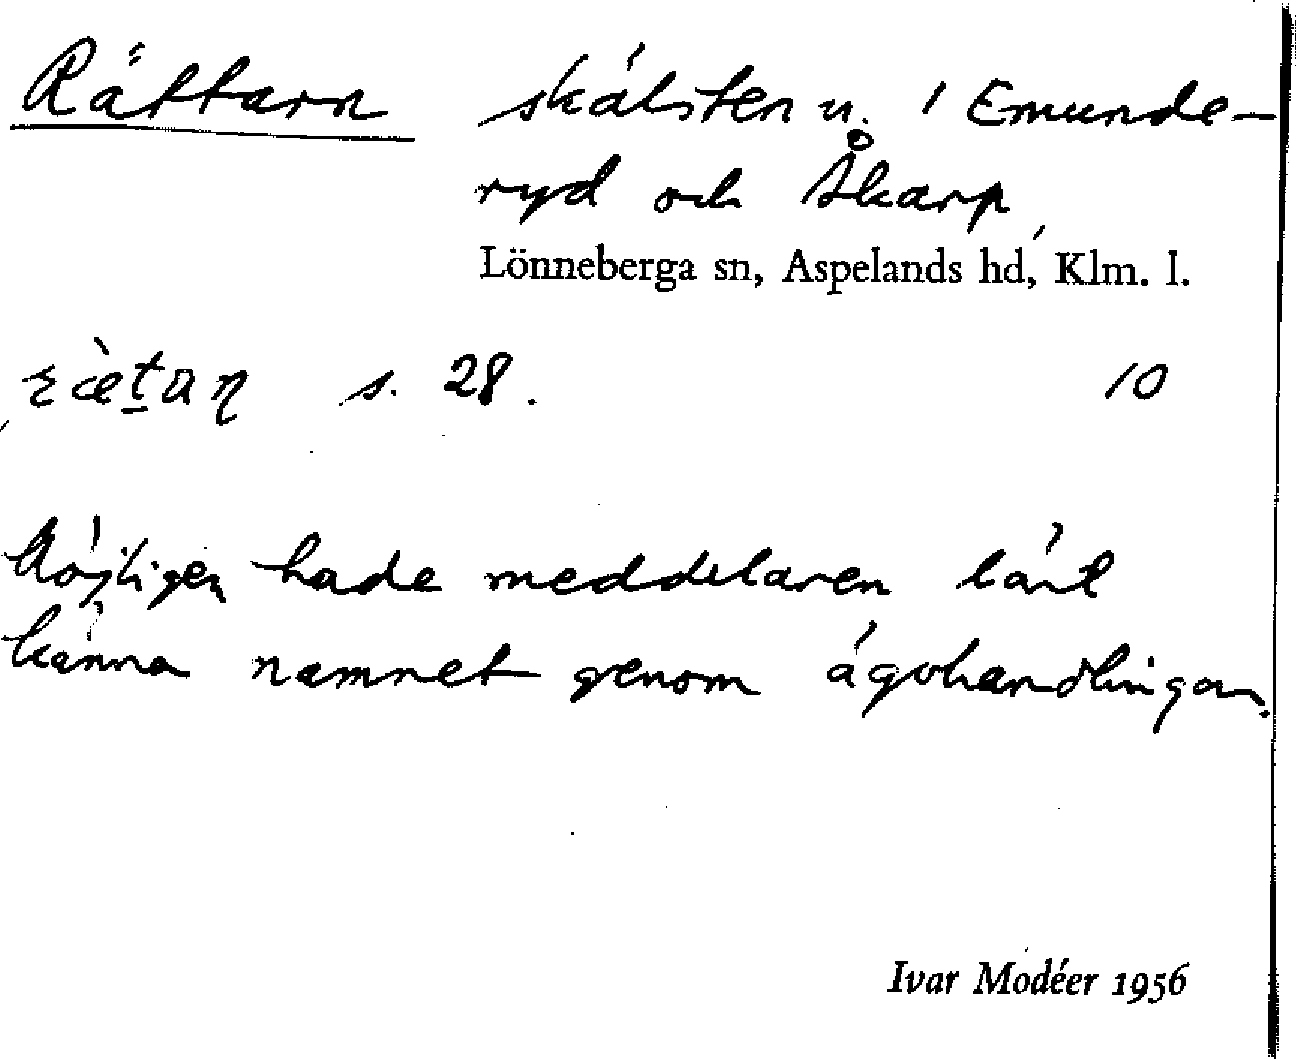 Rättarn skälsten u. i Emunde-
ryd och Åkarp,
Lönneberga sn, Aspelands hd, Klm. l.
s. 28. 10
Möjligen hade meddelaren lärt
känna namnet genom ägohandlingar.
Ivar Modéer 1956